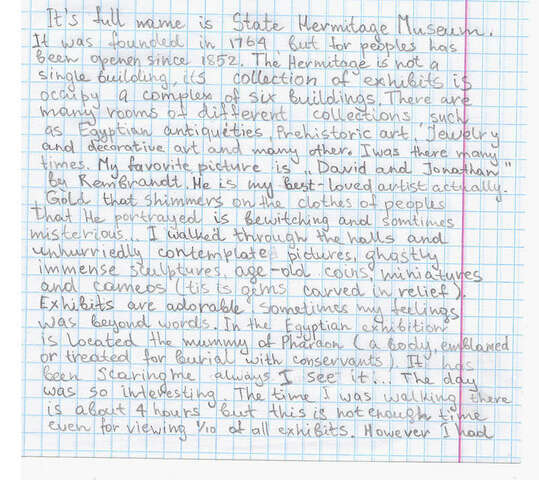 It's full name is State Hermitage Museum.
It was founded in 1764, but for peoples has
been openen since 1852. The Hermitage is not a
single building, its collection of exhibits is
occupy a complex of six buildings. There are
many rooms of different collections, such
as Egyptian antiqueties, Prehistoric art, Jewelry
and decorative art and many other. I was there many
times. My favorite picture is „David and Jonathan"
by Rembrandt. He is my best-loved artist actually.
Gold that shimmers on the clothes of peoples
that He portrayed is bewitching and somtimes
misterious... I walked through the halls and
unhurriedly contemplate pictures, ghastly
immense sculptures, age-old coins, miniatures
and cameos (tis is gems carved in relief).
Exhibits are adorable, sometimes my feelings
was beyond words. In the Egyptian exhibition
is located the mummy of Pharaon (a body, embalmed
or treated for burial with conservants). It has
been scaring me always I see it... The day
was so interesting. The time I was walking there
is about 4 hours but this is not enough time
even for viewing 1/10 of all exhibits. However I had